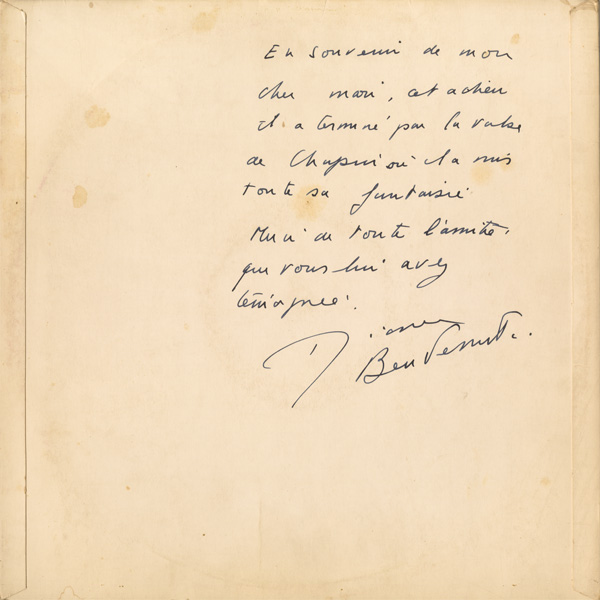 En souvenir de mon
cher mari, cet adieu
il a terminé par la valse
de Chopin où il a mis
toute sa fantaisie
Merci de toute l'amitié,
que vous lui avez
témoignée.
Diane
Benvenuti.